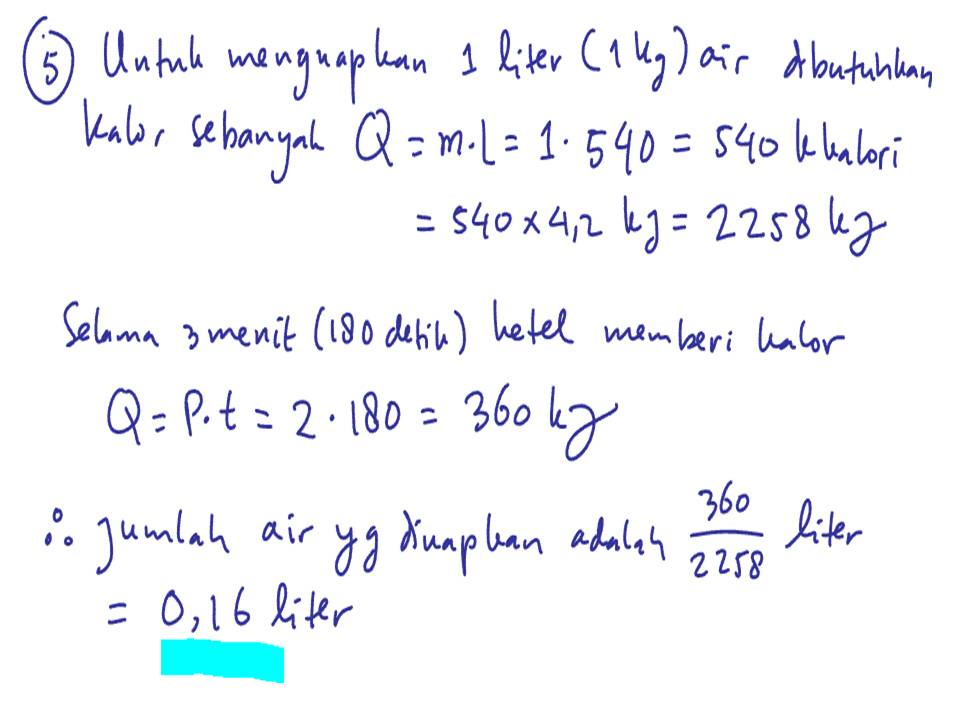 5 Untuk menguapkan 1 liter (1 kg) air dbutuhkan
kalor sebanyak Q = m.L = 1. 540 = 540 kkalori
= 540 x 4,2 kJ = 2258 kJ
Selama 3 menit (180 detik) ketel memberi kalor
Q = P.t = 2 . 180 = 360 kJ
∴ jumlah air yg diuapkan adalah 360/2258 liter
= 0,16 liter